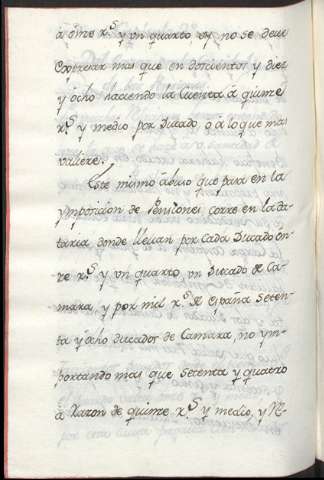 à onze r.s y un quarto oy no se deve
Expresar mas que en doscientos y diez
y ocho haciendo la cuenta à quinze
r.s y medio por Ducado, ò à lo que mas
valiere.
Este mismo abuso que pasa en la
ymposicion de Pensiones corre en la da-
taria donde llevan por cada Ducado on-
ze r.s y un quarto, un Ducado de Ca-
mara, y por mil r.s de España seten-
ta y ocho ducados de Camara, no ym-
portando mas que setenta y quatro
à razon de quinze r.s y medio, y